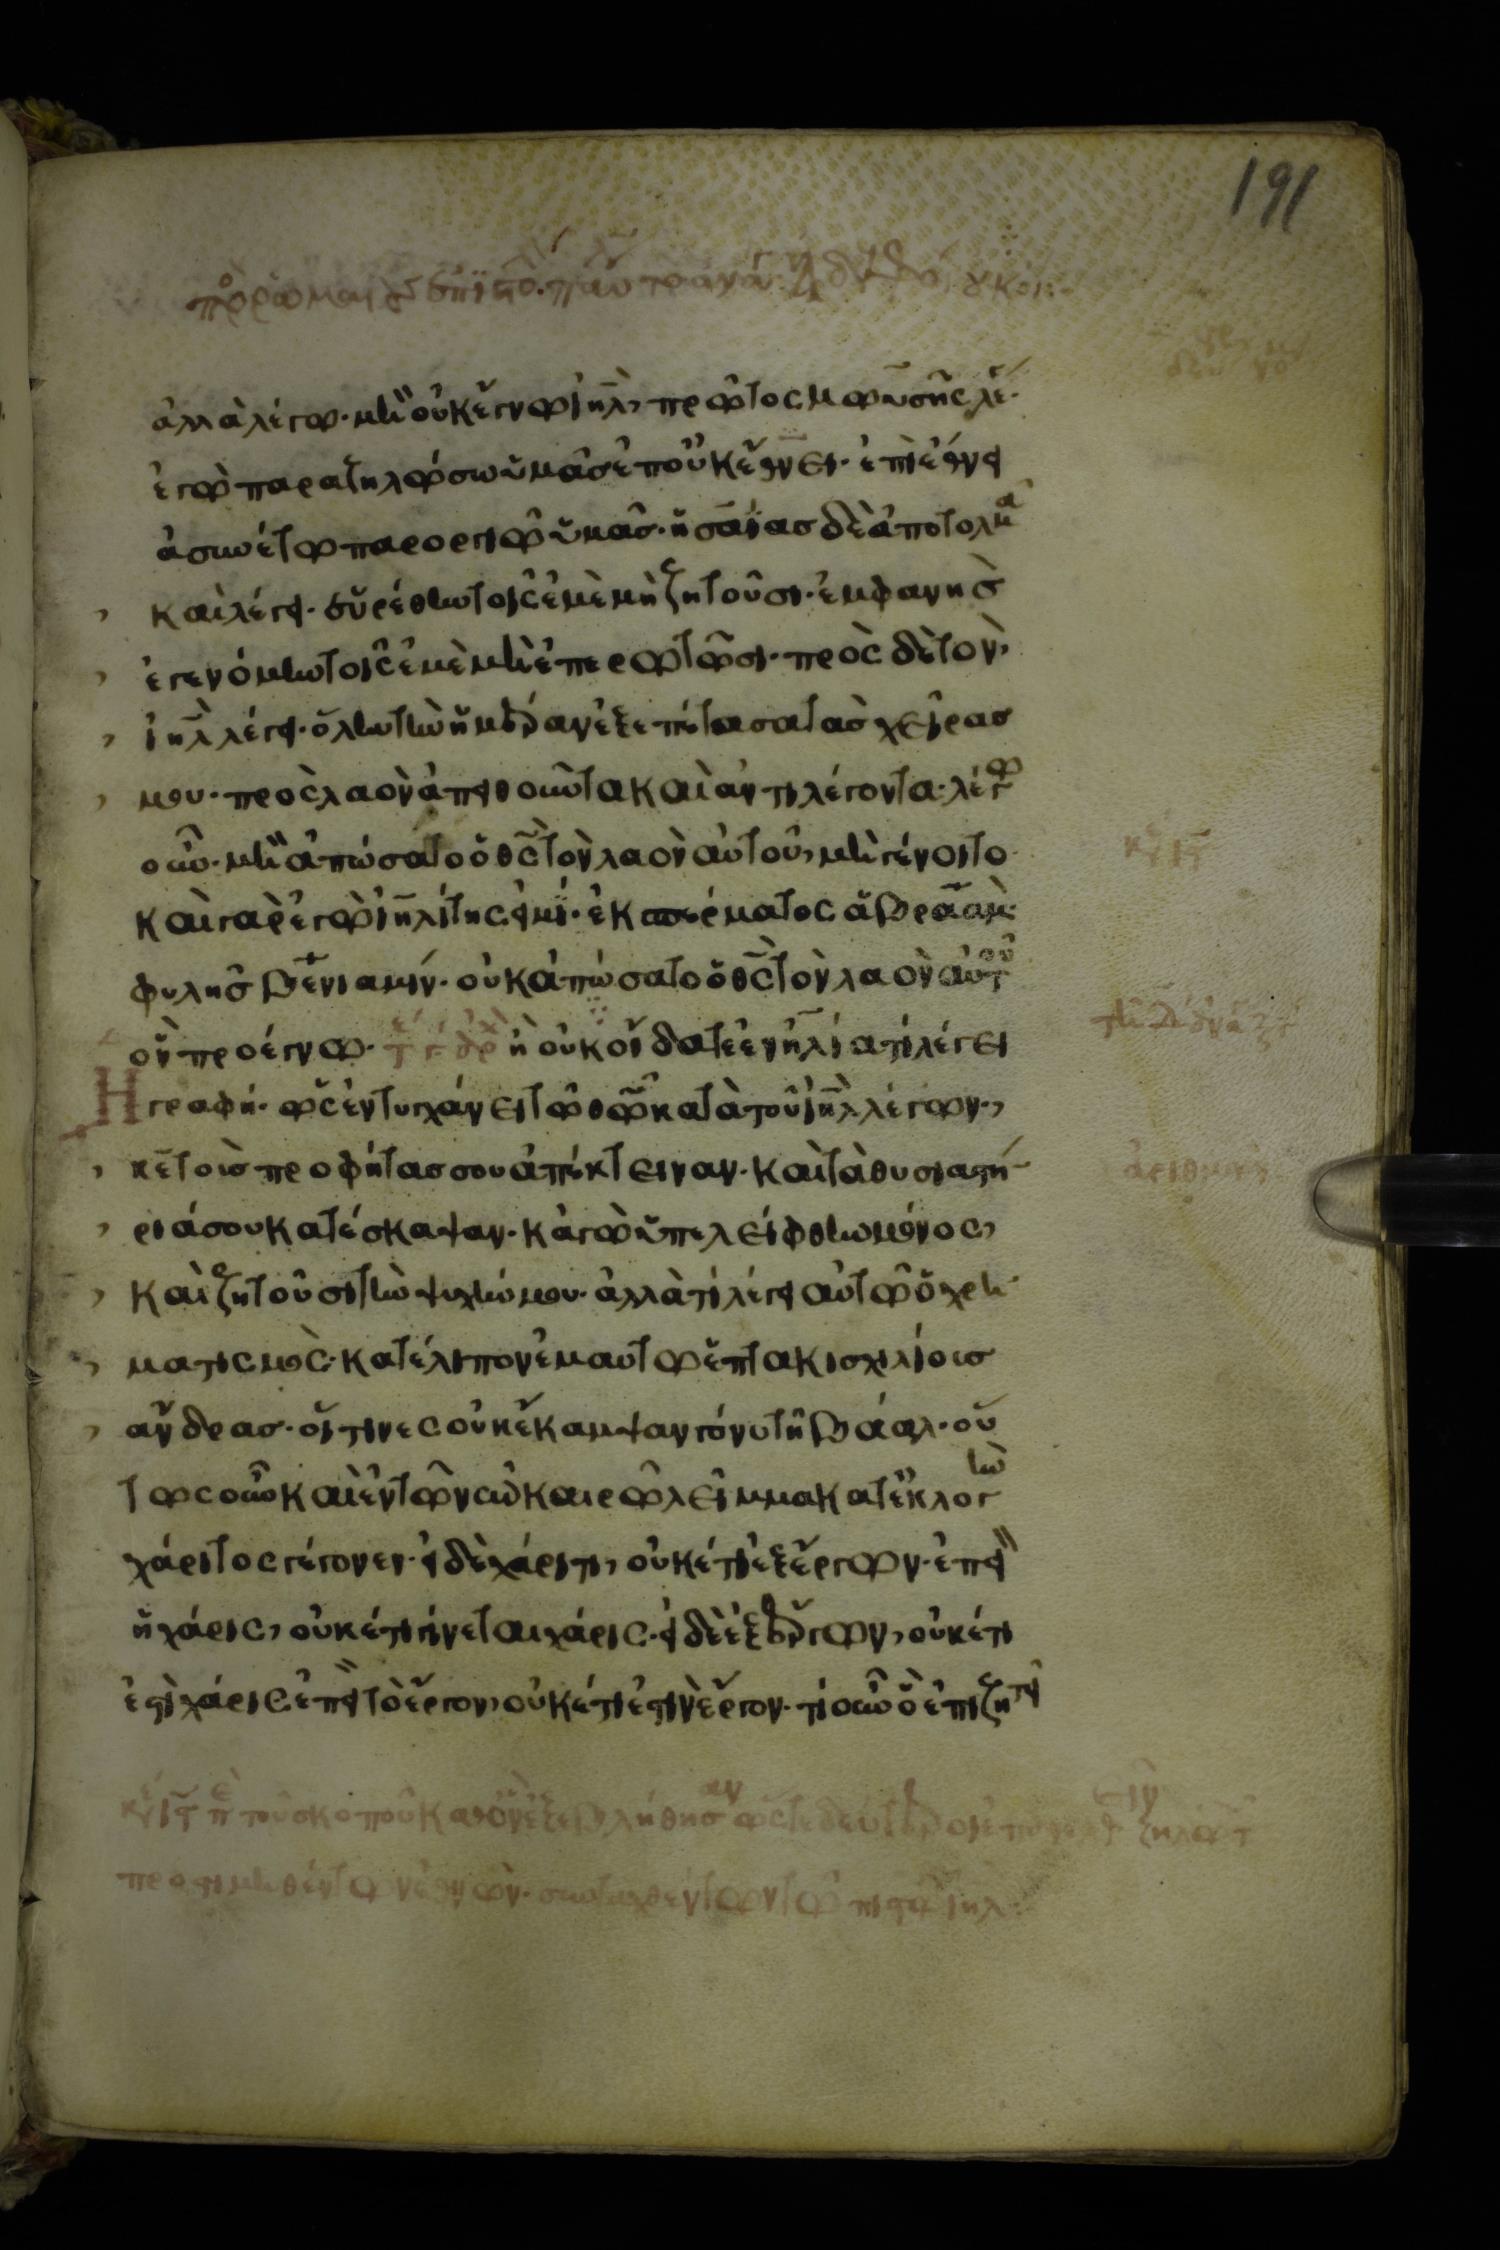 191
ἀλλὰ λέγω· μὴ οὐκ ἔγνω ἰηλ, πρῶτος μωυσῆς λέ·
ἐγὼ παραζηλώσω ὑμᾶς ἐπ οὐκ ἔθνει· ἐπὶ ἔθνει
ἀσυνέτω παροργιῶ ὑμᾶς· ἡσαΐας δὲ ἀποτολμᾶ
καὶ λέγει· εὑρέθην τοῖς ἐμὲ μὴ ζητοῦσι· ἐμφανὴς
ἐγενόμην τοῖς ἐμὲ μὴ ἐπερωτῶσι· πρὸς δὲ τὸν
ἰηλ λέγει· ὅλην τὴν ἡμέραν ἐξεπέτασα τὰς χεῖρας
μου· πρὸς λαὸν ἀπειθοῦντα καὶ ἀντιλέγοντα· λέγω
οὖν· μὴ ἀπώσατο ὁ θς τὸν λαὸν αὐτοῦ, μὴ γένοιτο
καὶ γὰρ ἐγὼ ἰηλίτης εἰμί· ἐκ σπέρματος ἀβραάμ·
φυλῆς βενιαμίν· οὐκ ἀπώσατο ὁ θς τὸν λαὸν αὐτοῦ
ὃν προέγνω· ἢ οὐκ οἴδατε ἐν ἠλίᾳ τί λέγει
Η γραφή· ὡς ἐντυγχάνει τῶ θῶ κατὰ τοῦ ἰηλ λέγων·
κε τοὺς προφήτας σου ἀπέκτειναν· καὶ τὰ θυσιαστή
ριά σου κατέσκαψαν· κἀγὼ ὑπελείφθην μόνος,
καὶ ζητοῦσι τὴν ψυχήν μου· ἀλλὰ τί λέγει αὐτῶ ὁ χρη
ματισμός· κατέλιπον ἐμαυτῶ ἑπτακισχιλίους
ἄνδρας· οἵτινες οὐκ ἔκαμψαν γόνυ τῆ βάαλ· οὕ
τως οὖν καὶ ἐν τῶ νῦν καιρῶ λεῖμμα κατ ἐκλογὴν
χάριτος γέγονεν· εἰ δὲ χάριτι, οὐκέτι ἐξ ἔργων· ἐπεὶ
ἡ χάρις, οὐκέτι γίνεται χάρις· εἰ δὲ ἐξ ἔργων, οὐκέτι
ἐστὶ χάρις ἐπεὶ τὸ ἔργον, οὐκέτι ἐστὶν ἔργον· τί οὖν ὃ ἐπιζητεῖ
τοῦ σκοποῦ καθ ὃν ἐξεβλήθησαν ὥστε δευτέρον
προτιμηθέντων ἐθνῶν· συνταχθέντων τῶ πιστῶ ἰηλ: